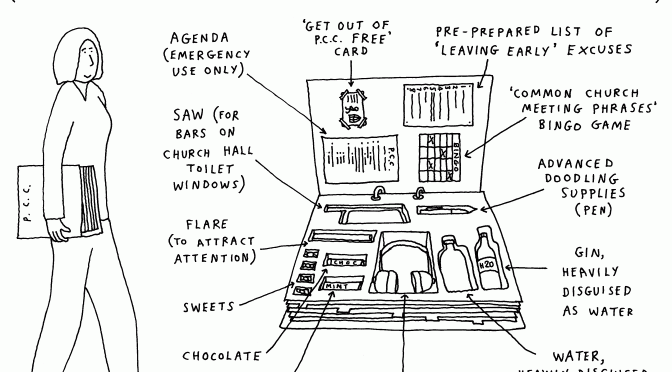 AGENDA
(EMERGENCY
USE ONLY)
'GET OUT OF
P.C.C. FREE'
CARD
PRE-PREPARED LIST OF
'LEAVING EARLY' EXCUSES
SAW (FOR
BARS ON
CHURCH HALL
TOILET
WINDOWS)
'COMMON CHURCH
MEETING PHRASES'
BINGO GAME
ADVANCED
DOODLING
SUPPLIES
(PEN)
FLARE
(TO ATTRACT
ATTENTION)
SWEETS
CHOCOLATE
GIN,
HEAVILY
DISGUISED
AS WATER
WATER,
HEAVILY DISGUISED
P.C.C.
P.C.C.
BINGO
CHOC
MINT
H2O